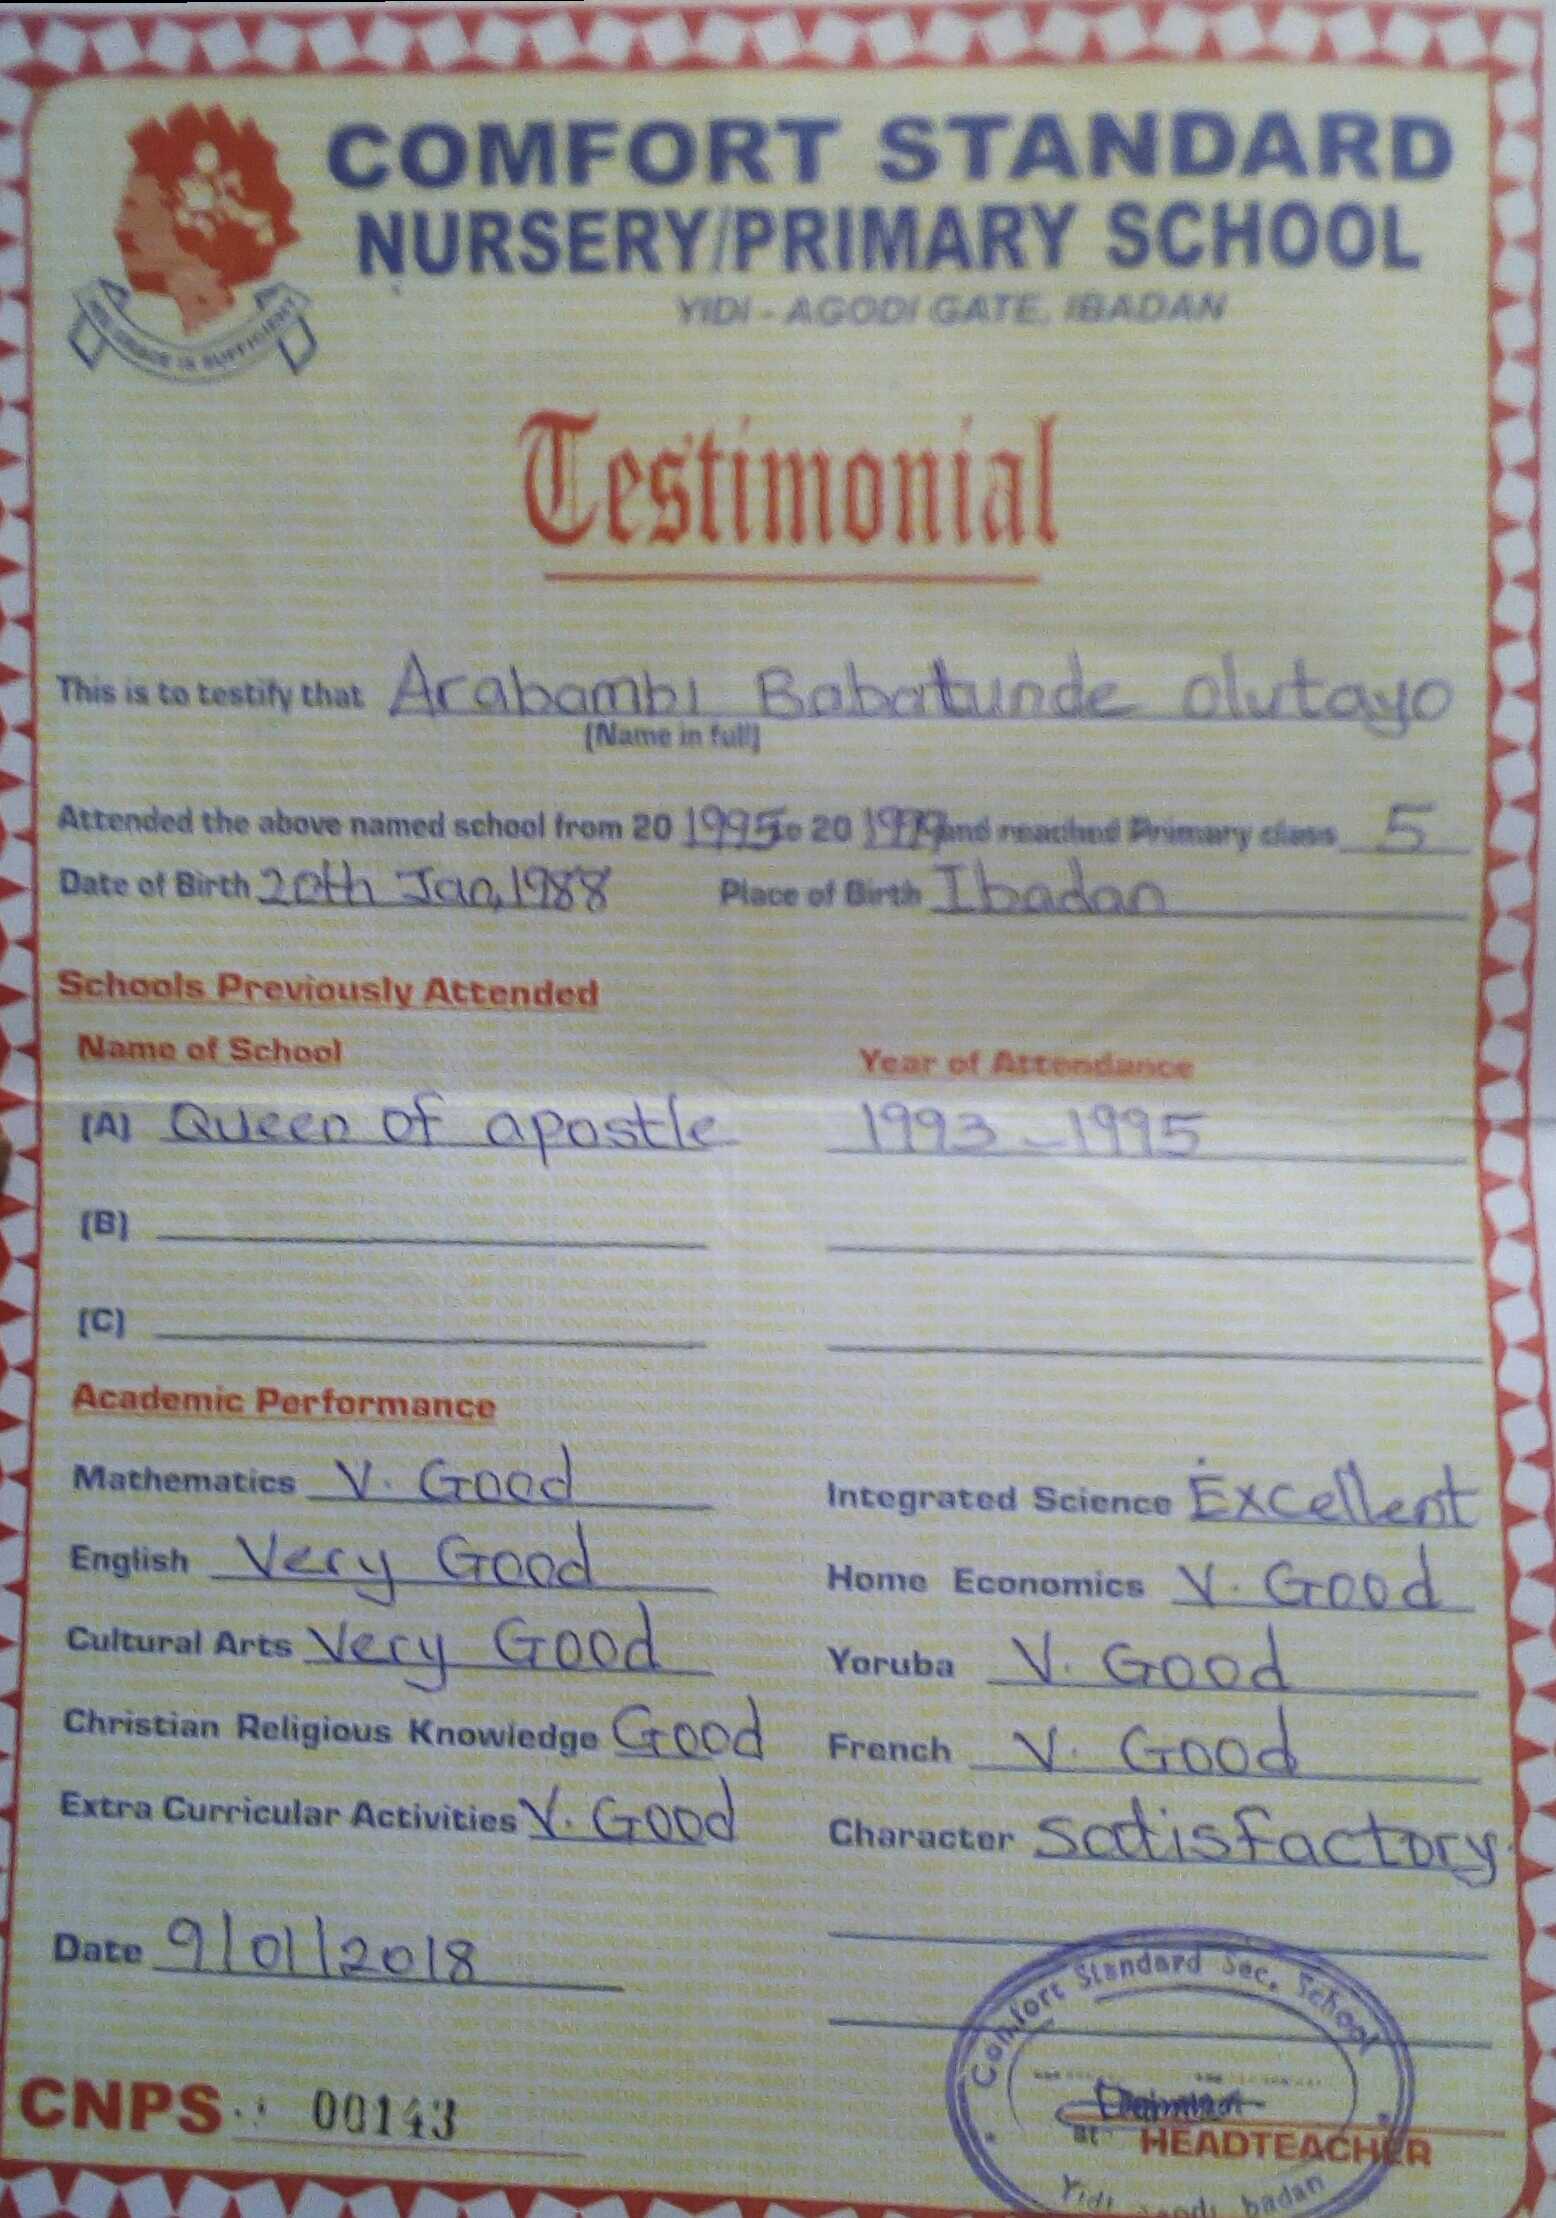 COMFORT STANDARD
NURSERY/PRIMARY SCHOOL
YIDI - AGODI GATE, IBADAN
GRACE IS SUFFICIENT
Testimonial
This is to testify that Arabambi Babatunde Olutayo
(Name in full)
Attended the above named school from 20 1995 to 20 1999 and reached Primary class 5
Date of Birth 20th Jan, 1988 Place of Birth Ibadan
Schools Previously Attended
Name of School Year of Attendance
(A) Queen of apostle 1993 - 1995
(B)
(C)
Academic Performance
Mathematics V. Good Integrated Science Excellent
English Very Good Home Economics V. Good
Cultural Arts Very Good Yoruba V. Good
Christian Religious Knowledge Good French V. Good
Extra Curricular Activities V. Good Character Satisfactory
Date 9/01/2018
Comfort Standard Sec. School
CNPS 00143
HEADTEACHER
Yidi